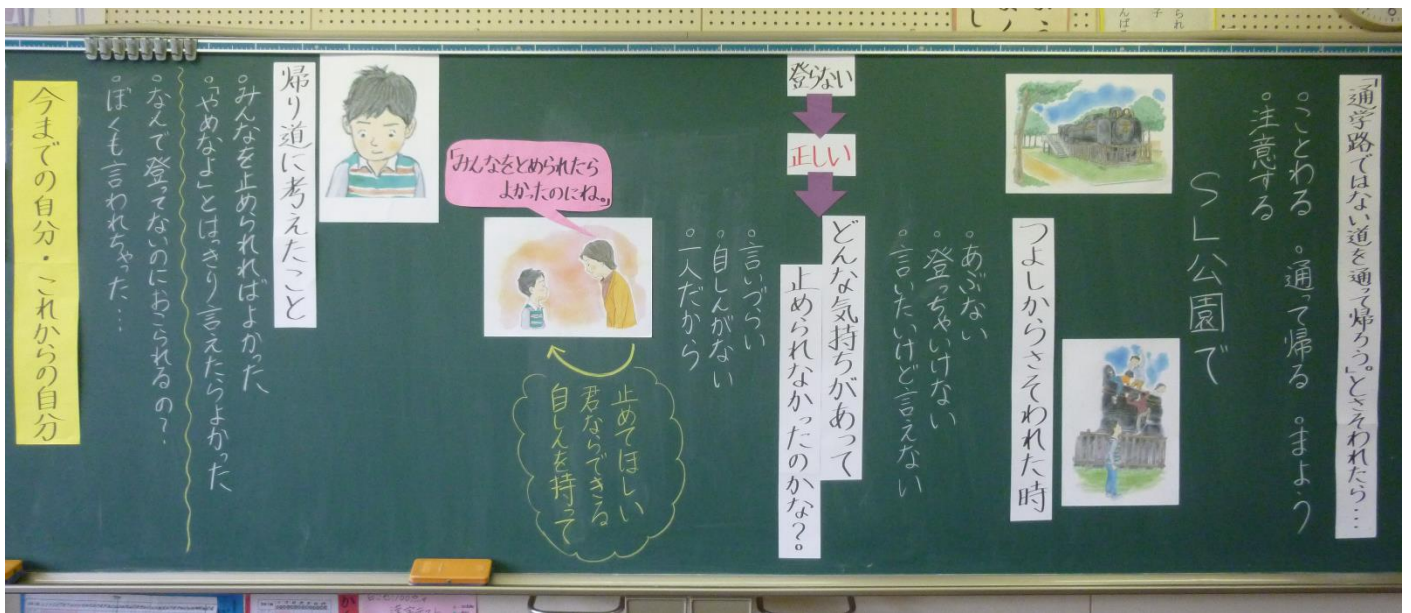 「通学路ではない道を通って帰ろう。」とさそわれたら…
。ことわる 。通って帰る 。まよう
。注意する
SL公園で
つよしからさそわれた時
。あぶない
。登っちゃいけない
。言いたいけど言えない
登らない
正しい
どんな気持ちがあって
止められなかったのかな？。
。言いづらい
。自しんがない
。一人だから
「みんなをとめられたら
よかったのにね。」
止めてほしい
君ならできる
自しんを持って
帰り道に考えたこと
。みんなを止められればよかった、
。「やめなよ」とはっきり言えたらよかった、
。なんで登ってないのにおこられるの？
。ぼくも言われちゃった…
今までの自分・これからの自分